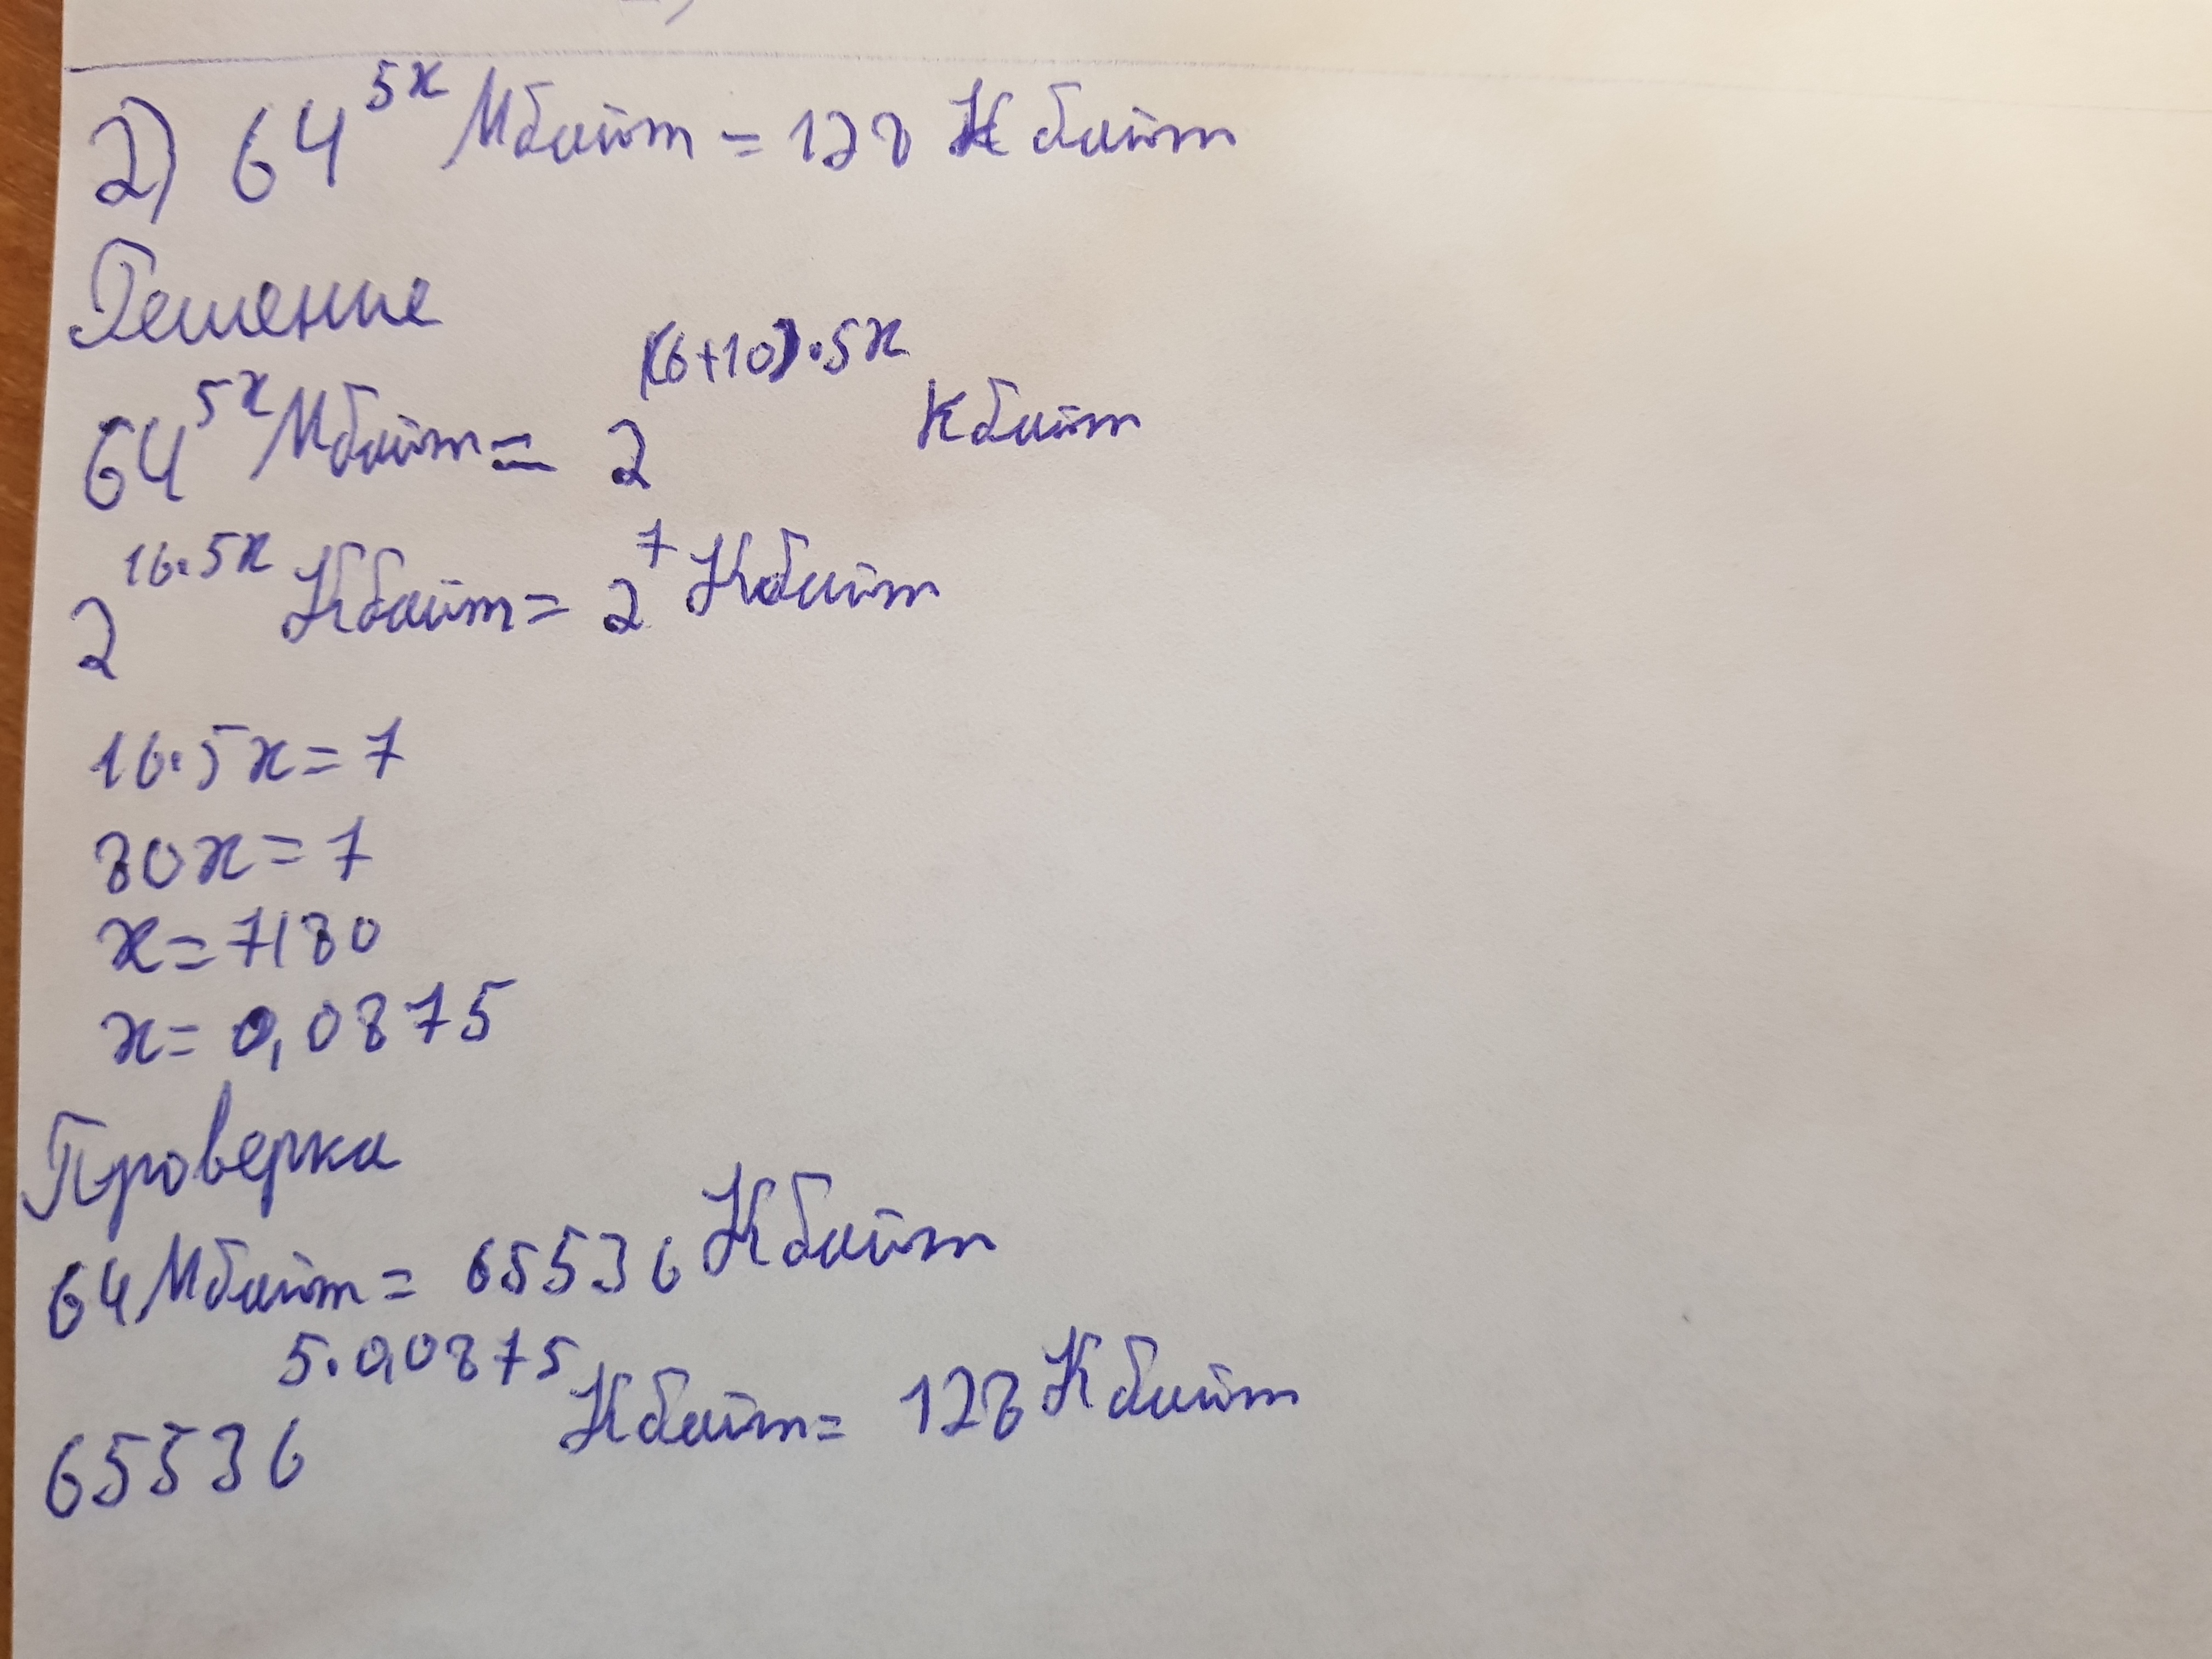 2) 64^5x Мбайт = 128 Кбайт
Решение
64^5x Мбайт = 2^(6+10)·5x Кбайт
2^16·5x Кбайт = 2^7 Кбайт
16·5x = 7
80x = 7
x = 7/80
x = 0,0875
Проверка
64 Мбайт = 65536 Кбайт
65536^5·0,0875 Кбайт = 128 Кбайт